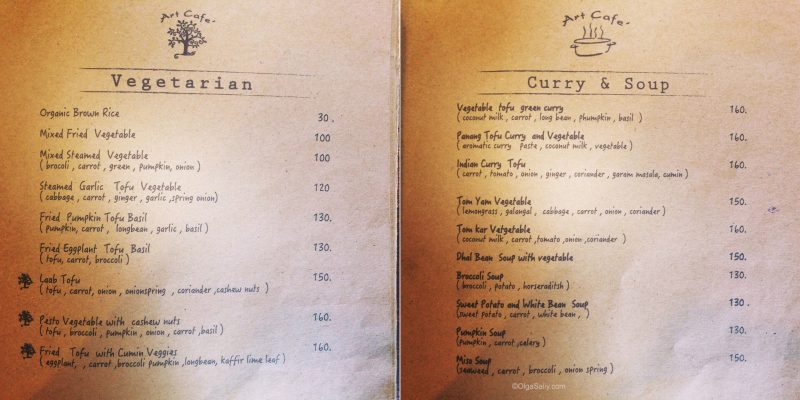 Art Cafe'
Vegetarian
Organic Brown Rice 30.
Mixed Fried Vegetable 100
Mixed Steamed Vegetable 100
( brocoli , carrot , green , pumpkin, onion )
Steamed Garlic Tofu Vegetable 120
( cabbage , carrot , ginger , garlic ,spring onion)
Fried Pumpkin Tofu Basil 130.
( pumpkin, carrot , longbean , garlic , basil )
Fried Eggplant Tofu Basil 130.
( tofu, carrot, broccoli )
Laab Tofu 150.
( tofu , carrot, onion , onionspring , coriander ,cashew nuts )
Pesto Vegetable with cashew nuts 160.
( tofu , broccoli , pumpkin , onion , carrot ,basil )
Fried Tofu with Cumin Veggies 160.
( eggplant, , carrot , broccoli pumpkin ,longbean, kaffir lime leaf )
Art Cafe'
Curry & Soup
Vegetable tofu green curry 160.
( coconut milk , carrot , long bean , phumpkin , basil )
Panang Tofu Curry and Vegetable 160.
( aromatic curry paste , coconut milk , vegetable )
Indian Curry Tofu 160.
( carrot , tomato , onion , ginger , coriander , garam masala, cumin )
Tom Yam Vegetable 150.
( lemongrass , galangal , cabbage , carrot , onion , coriander )
Tom kar Vatgetable 160.
( coconut milk , carrot ,tomato ,onion ,coriander )
Dhal Bean Soup with vegetable 150.
Broccoli Soup 130.
( broccoli , potato , horseraditsh )
Sweet Potato and White Bean Soup 130.
(sweet potato , carrot , white bean , )
Pumpkin Soup 130.
(pumpkin , carrot ,celery )
Miso Soup 150.
(seaweed , carrot , broccoli , onion spring )
©OlgaSaliy.com